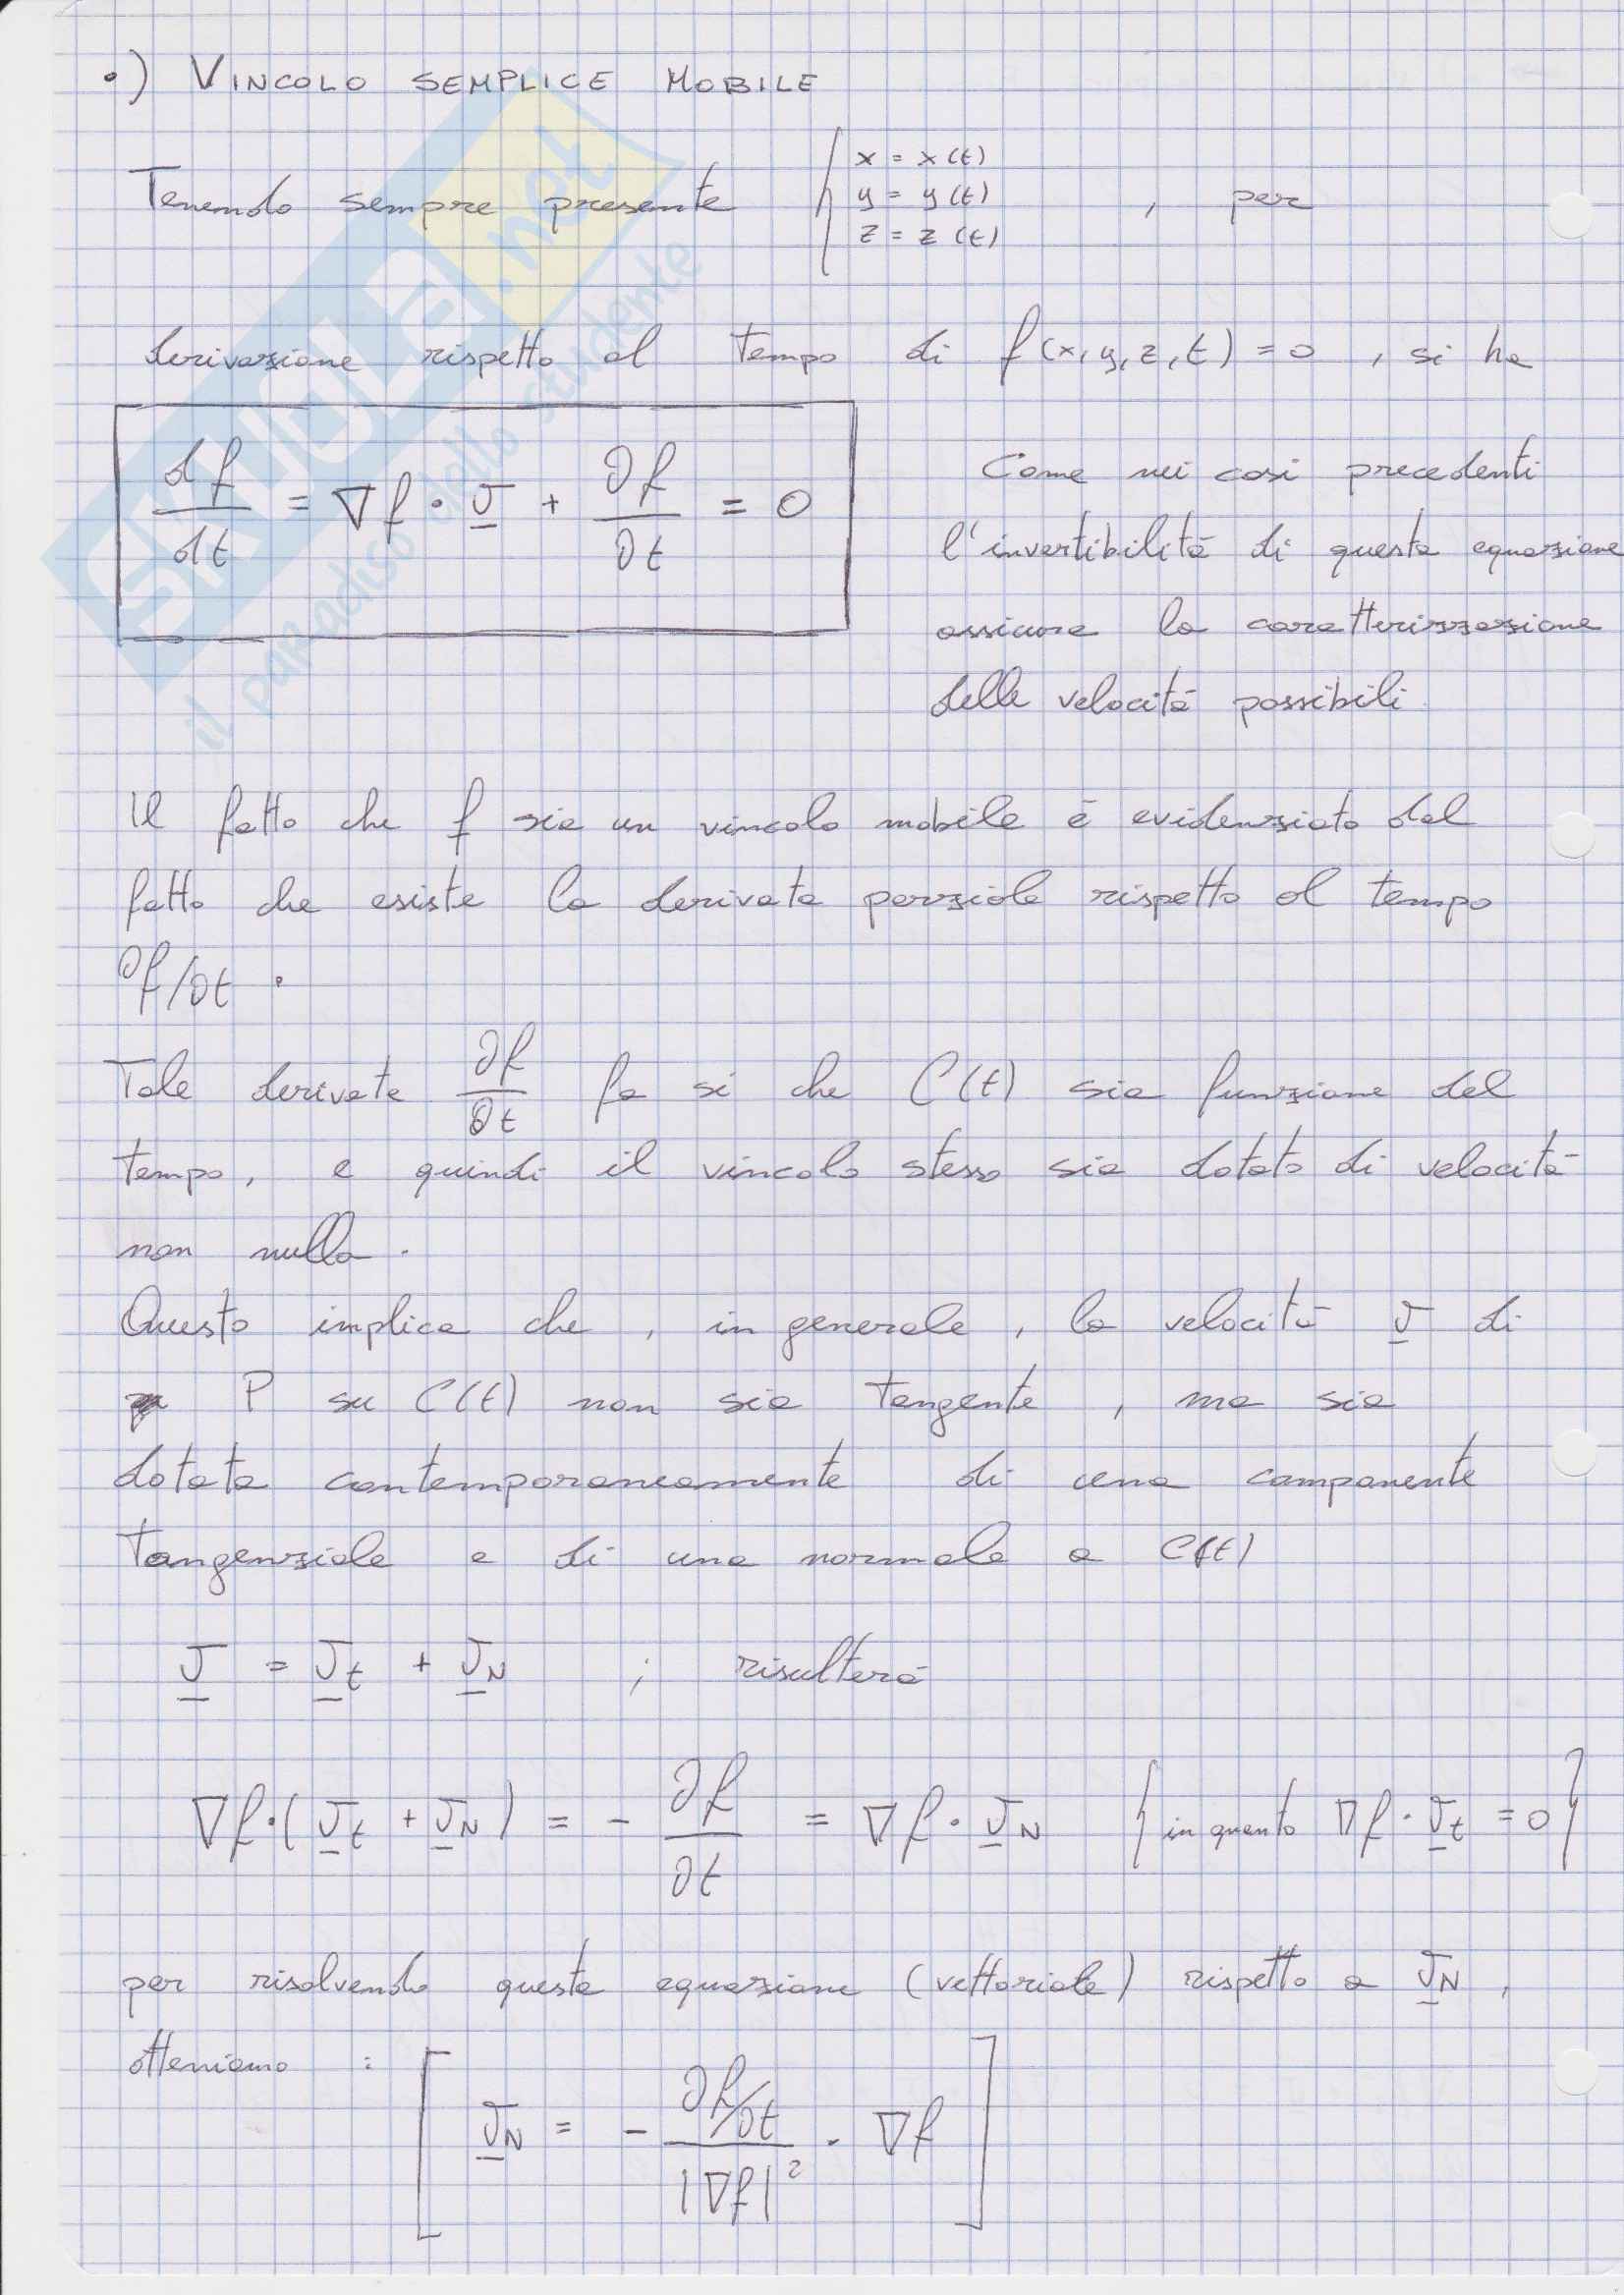 •) VINCOLO SEMPLICE MOBILE
Tenendo sempre presente { x = x(t) y = y(t) z = z(t) , per
derivazione rispetto al tempo di f(x, y, z, t) = 0 , si ha
df/dt = ∇f · v + ∂f/∂t = 0
Come nei casi precedenti
l'invertibilità di questa equazione
assicura la caratterizzazione
delle velocità possibili.
Il fatto che f sia un vincolo mobile è evidenziato dal
fatto che esiste la derivata parziale rispetto al tempo
∂f/∂t .
Tale derivata ∂f/∂t fa si che C(t) sia funzione del
tempo, e quindi il vincolo stesso sia dotato di velocità
non nulla.
Questo implica che, in generale, la velocità v di
P su C(t) non sia tangente, ma sia
dotata contemporaneamente di una componente
tangenziale e di una normale a C(t)
v = v_t + v_N ; risulterà
∇f·(v_t + v_N) = - ∂f/∂t = ∇f · v_N {in quanto ∇f · v_t = 0}
per risolvendo questa equazione (vettoriale) rispetto a v_N,
otteniamo :
[ v_N = - (∂f/∂t)/|∇f|² · ∇f ]
SKUOLA.net
il paradiso dello studente